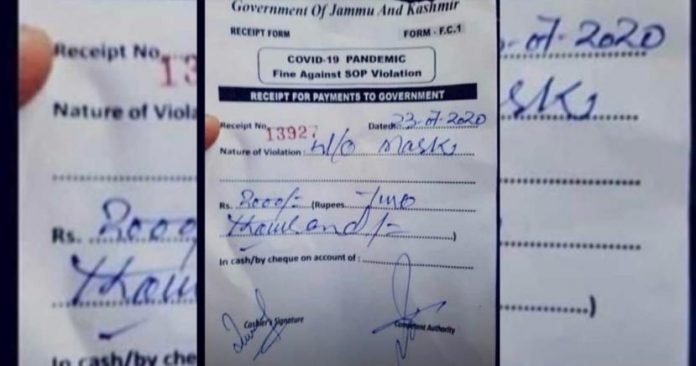 Government Of Jammu And Kashmir
RECEIPT FORM FORM - F.C.1
COVID-19 PANDEMIC
Fine Against SOP Violation
RECEIPT FOR PAYMENTS TO GOVERNMENT
Receipt No. 13927 Dated: 23-07-2020
Nature of Violation : W/O Mask
Rs. 2000/- (Rupees Two
thousand/- )
In cash/by cheque on account of :
Cashier's Signature Competent Authority
Receipt No.
13
Nature of Viola
Rs. 2000
thou
In cash/by cheque
-07-2020
ask
)